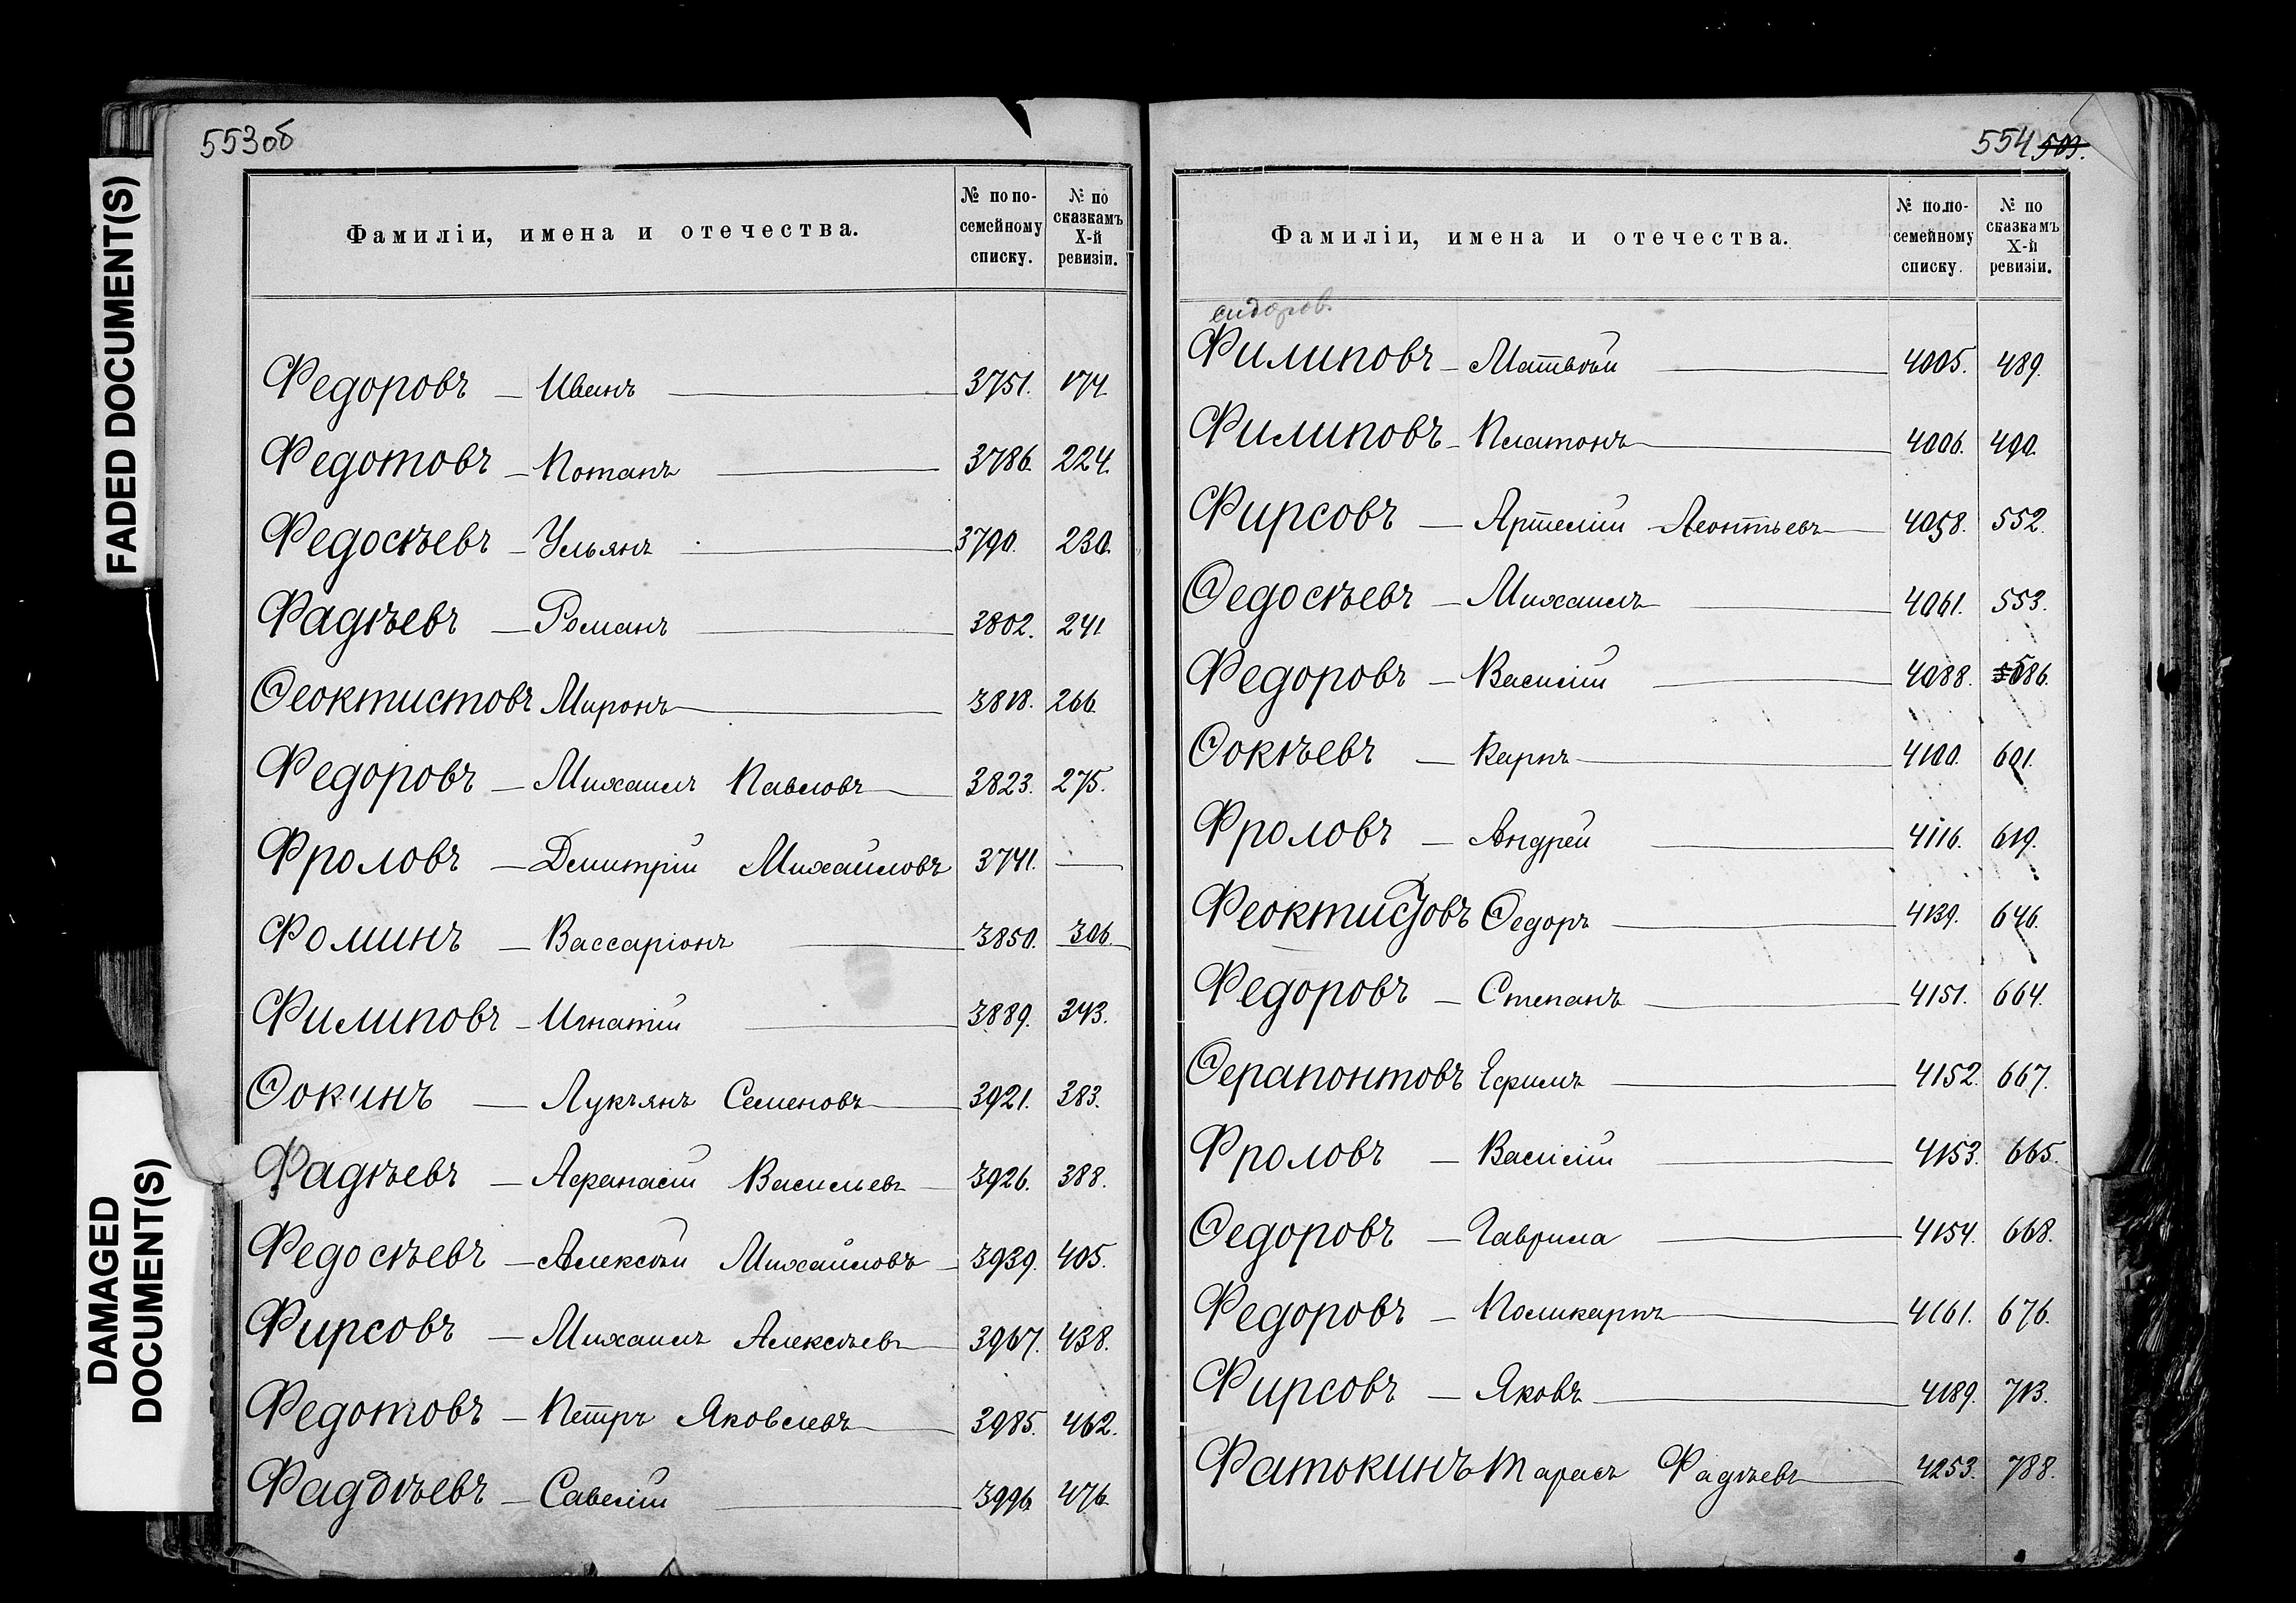 FADED DOCUMENT(S)
DAMAGED
DOCUMENT(S)
553об
Фамиліи, имена и отечества.
№ по по-
семейному
списку.
№ по
сказкамъ
X-й
ревизіи.
Федоровъ — Иванъ 3751. 174.
Федотовъ — Потапъ 3786. 224.
Федосѣевъ — Ульянъ 3790. 230.
Фадѣевъ — Романъ 3802. 241
Ѳеоктистовъ Миронъ 3818. 266.
Федоровъ — Михаилъ Павловъ 3823. 275.
Фроловъ — Дмитрій Михайловъ 3741. —
Фоминъ — Вассаріонъ 3850. 306.
Филиповъ — Игнатій 3889. 343.
Ѳокинъ — Лукъянъ Семеновъ 3921. 383.
Фадѣевъ — Афанасій Васильевъ 3926. 388.
Федосѣевъ — Алексѣй Михайловъ 3939. 405.
Фирсовъ — Михаилъ Алексѣевъ 3967. 438.
Федотовъ — Петръ Яковлевъ 3985. 462.
Фадѣевъ — Савелій 3996. 476.
554 503.
Фамиліи, имена и отечества.
№ по по-
семейному
списку.
№ по
сказкамъ
X-й
ревизіи.
сидоров.
Филиповъ — Матвѣй 4005. 489.
Филиповъ — Платонъ 4006. 490.
Фирсовъ — Артемій Леонтьевъ 4058. 552.
Ѳедосѣевъ — Михаилъ 4061. 553.
Федоровъ — Василій 4088. 586.
Ѳокѣевъ — Карпъ 4100. 601.
Фроловъ — Андрей 4116. 619.
Феоктистовъ Ѳедоръ 4139. 646.
Федоровъ — Степанъ 4151. 664.
Ѳерапонтовъ Ефимъ 4152. 667.
Фроловъ — Василій 4153. 665.
Ѳедоровъ — Гаврила 4154. 668.
Федоровъ — Поликарпъ 4161. 676.
Фирсовъ — Яковъ 4189. 713.
Фатюкинъ Тарасъ Фадѣевъ 4253. 788.